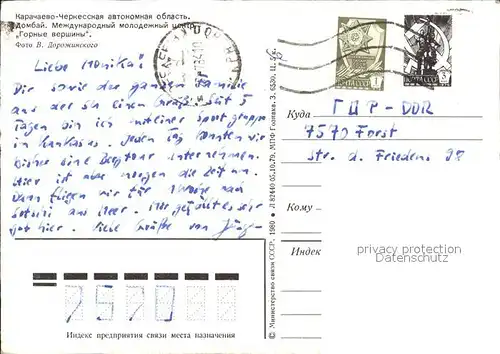 Карачаево-Черкесская автономная область.
Домбай. Международный молодежный центр
„Горные вершины".
Фото В. Дорожинского
Liebe Monika!
Dir sowie der ganzen Familie
aus der SU einen Gruß. Seit 5
Tagen bin ich mit einer Sportgruppe
im Kaukasus. Jeden Tag konnten wir
bisher eine Bergtour unternehmen.
Hier ist aber morgen die Zeit um.
Dann fliegen wir für Tage nach
Sotschi ans Meer. Mir gefällt es sehr
gut hier. Viele Grüße von Jürg-
1
3
Куда ГДР-DDR
7570 Forst
Str. d. Friedens 98
Кому
Индекс
privacy protection
DarkWorkX.com
7570
Индекс предприятия связи места назначения
© Министерство связи СССР, 1980 ● Л 82440 05.10.79. МПФ Гознака. З. 6530. Ц. 5 к.